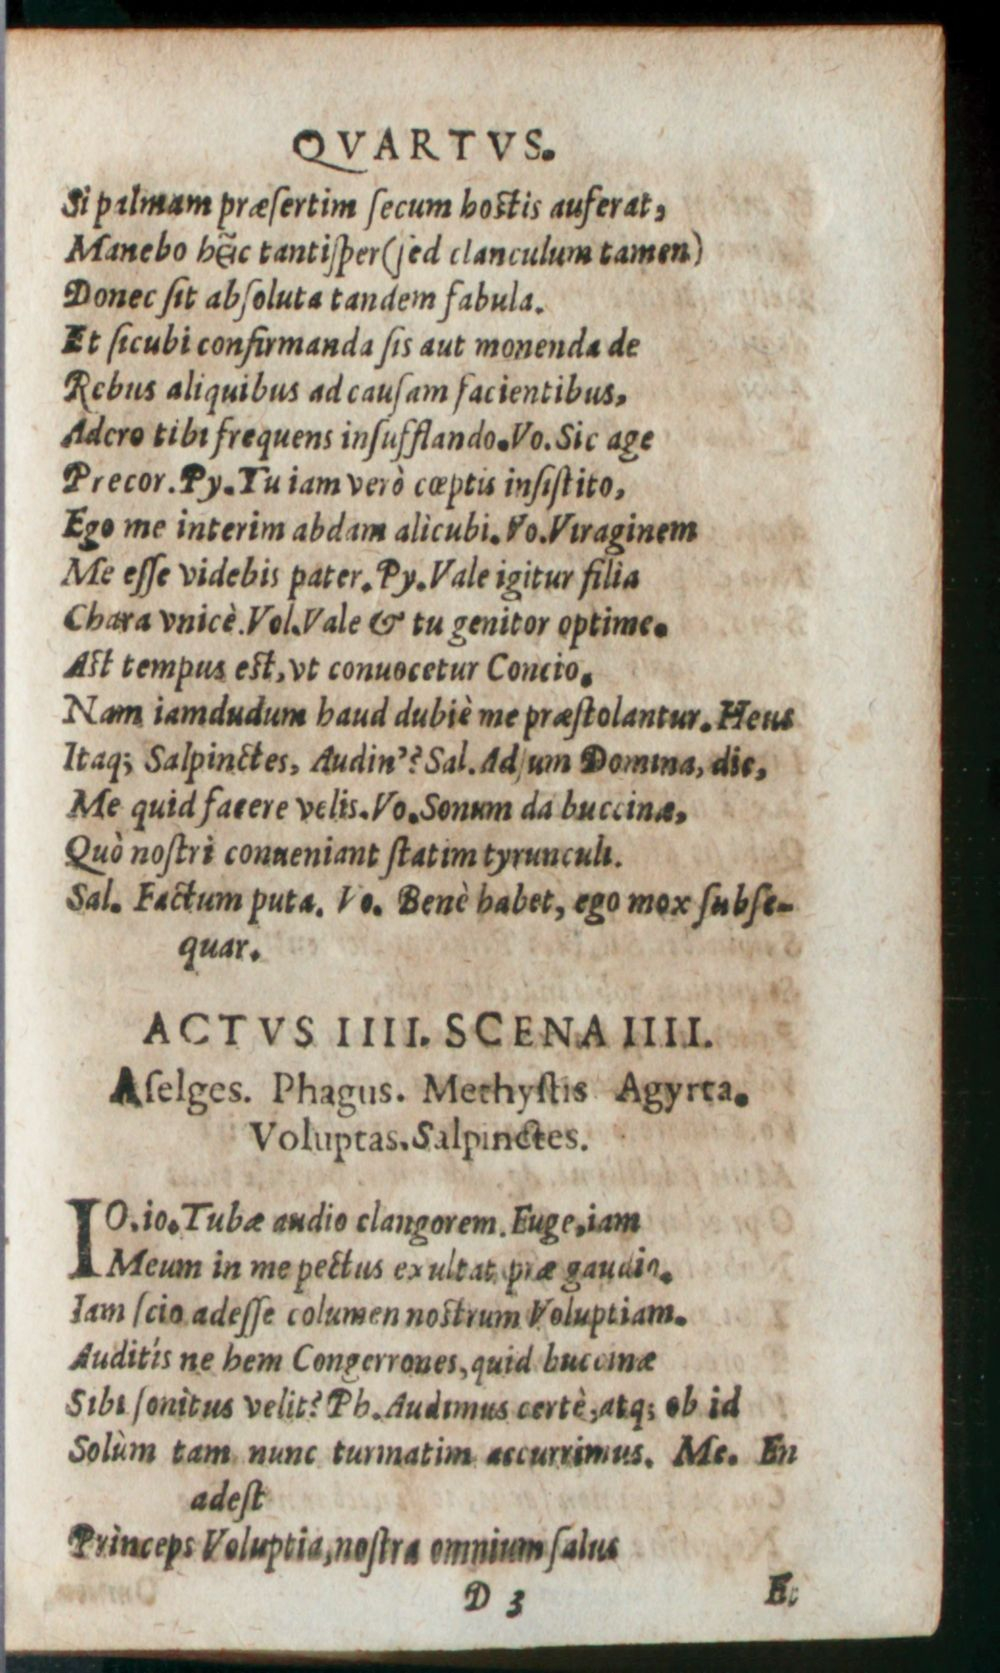 QVARTVS.
Si palmam præſertim ſecum hostis auferat,
Manebo hãc tantiſper (ſed clanculum tamen)
Donec ſit abſoluta tandem fabula.
Et ſicubi confirmanda ſis aut monenda de
Rebus aliquibus ad cauſam facientibus,
Adero tibi frequens inſufflando. Vo. Sic age
Precor. Py. Tu iam verò cœptis inſiſtito,
Ego me interim abdam alicubi. Vo. Viraginem
Me eſſe videbis pater. Py. Vale igitur filia
Chara vnicè. Vol. Vale & tu genitor optime.
Ast tempus est, vt conuocetur Concio.
Nam iamdudum haud dubiè me præſtolantur. Heus
Itaq; Salpinctes, Audin'? Sal. Adſum Domina, dic,
Me quid facere velis. Vo. Sonum da buccinæ,
Quò noſtri conueniant ſtatim tyrunculi.
Sal. Factum puta. Vo. Benè habet, ego mox ſubſe-
quar.
ACTVS IIII. SCENA IIII.
Aſelges. Phagus. Methyſtis Agyrta.
Voluptas. Salpinctes.
IO. io. Tubæ audio clangorem. Euge, iam
Meum in me pectus exultat præ gaudio.
Iam ſcio adeſſe columen nostrum Voluptiam.
Auditis ne hem Congerrones, quid buccinæ
Sibi ſonitus velit? Ph. Audimus certè, atq; ob id
Solùm tam nunc turmatim accurrimus. Me. En
adest
Princeps Voluptia, noſtra omnium ſalus
D 3 Et